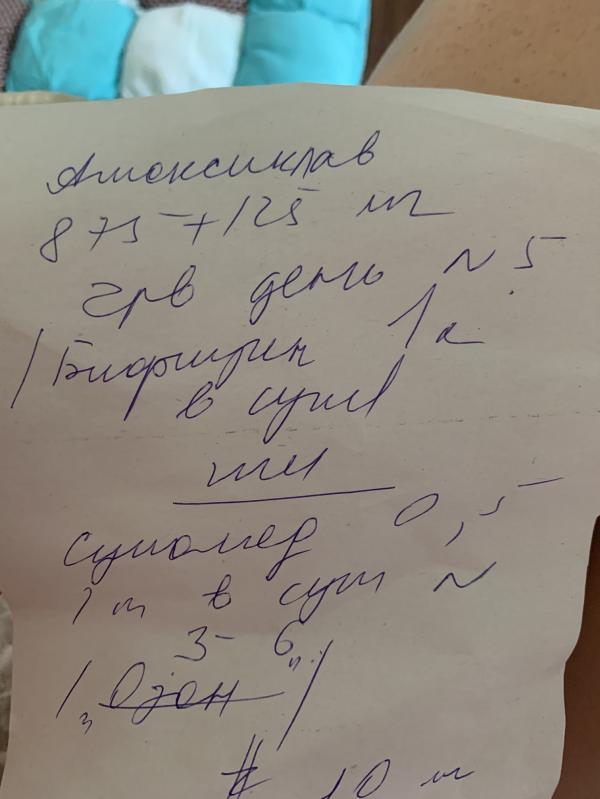 Амоксиклав
875+125 мг
2 рв день N 5
/ Бифиформ 1 к
в сут
или
сумамед 0,5
1 т в сут N
3-6
/ "Озон" /
# 10 т